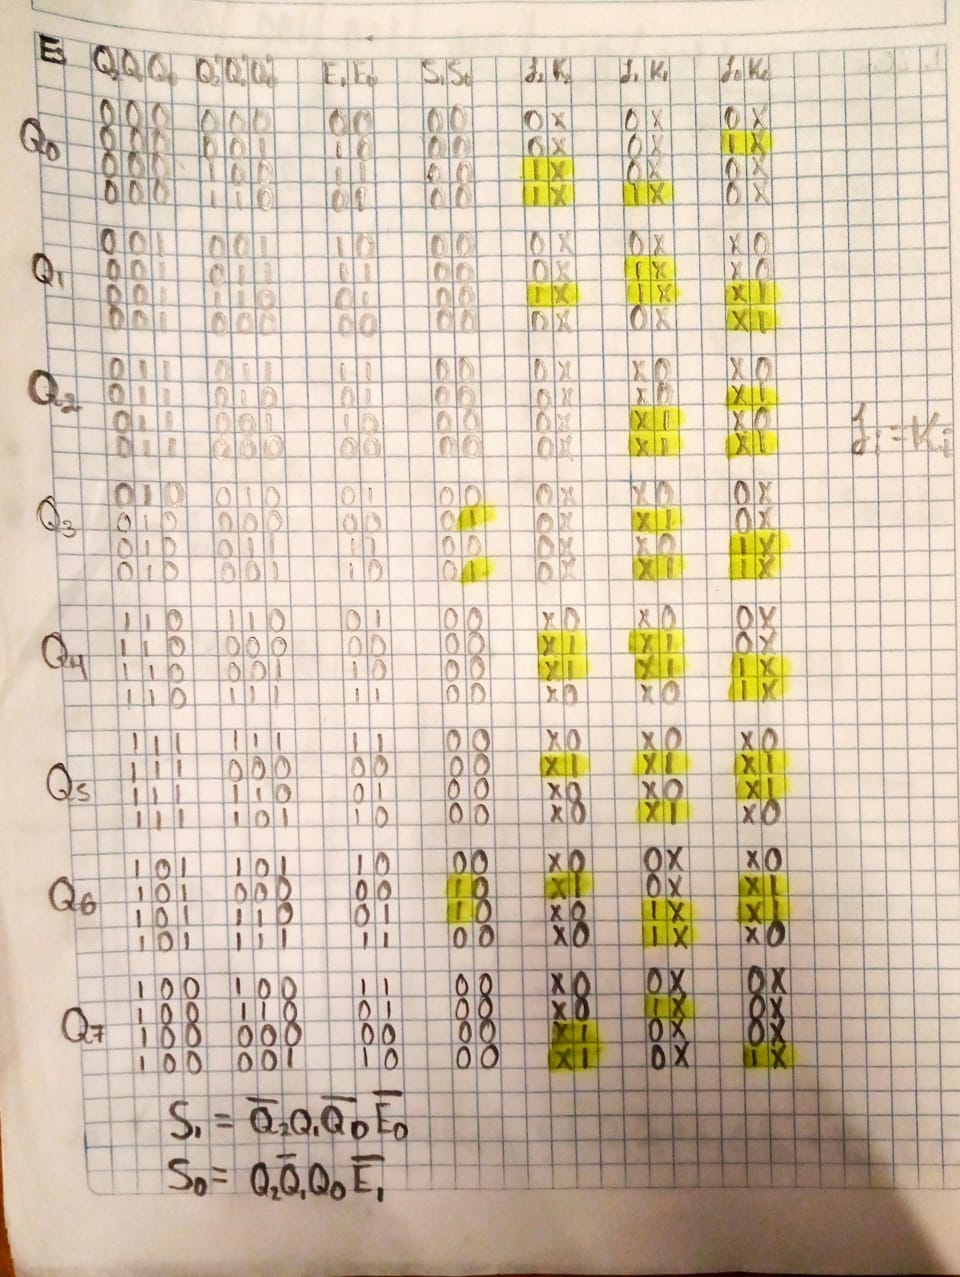 E Q₂Q₁Q₀ Q₂⁺Q₁⁺Q₀⁺ E₁E₀ S₁S₀ J₂K₂ J₁K₁ J₀K₀
000 000 00 00 0X 0X 0X
Q₀ 000 001 10 00 0X 0X 1X
000 100 11 00 1X 0X 0X
000 110 01 00 1X 1X 0X
001 001 10 00 0X 0X X0
Q₁ 001 011 11 00 0X 1X X0
001 110 01 00 1X 1X X1
001 000 00 00 0X 0X X1
011 011 11 00 0X X0 X0
Q₂ 011 010 01 00 0X X0 X1
011 001 10 00 0X X1 X0
011 000 00 00 0X X1 X1
Jᵢ=Kᵢ
010 010 01 00 0X X0 0X
Q₃ 010 000 00 01 0X X1 0X
010 011 11 00 0X X0 1X
010 001 10 01 0X X1 1X
110 110 01 00 X0 X0 0X
Q₄ 110 000 00 00 X1 X1 0X
110 001 10 00 X1 X1 1X
110 111 11 00 X0 X0 1X
111 111 11 00 X0 X0 X0
Q₅ 111 000 00 00 X1 X1 X1
111 110 01 00 X0 X0 X1
111 101 10 00 X0 X1 X0
101 101 10 00 X0 0X X0
Q₆ 101 000 00 10 X1 0X X1
101 110 01 10 X0 1X X1
101 111 11 00 X0 1X X0
100 100 11 00 X0 0X 0X
Q₇ 100 110 01 00 X0 1X 0X
100 000 00 00 X1 0X 0X
100 001 10 00 X1 0X 1X
S₁ = Q̅₂Q₁Q̅₀E̅₀
S₀ = Q₂Q̅₁Q₀E̅₁